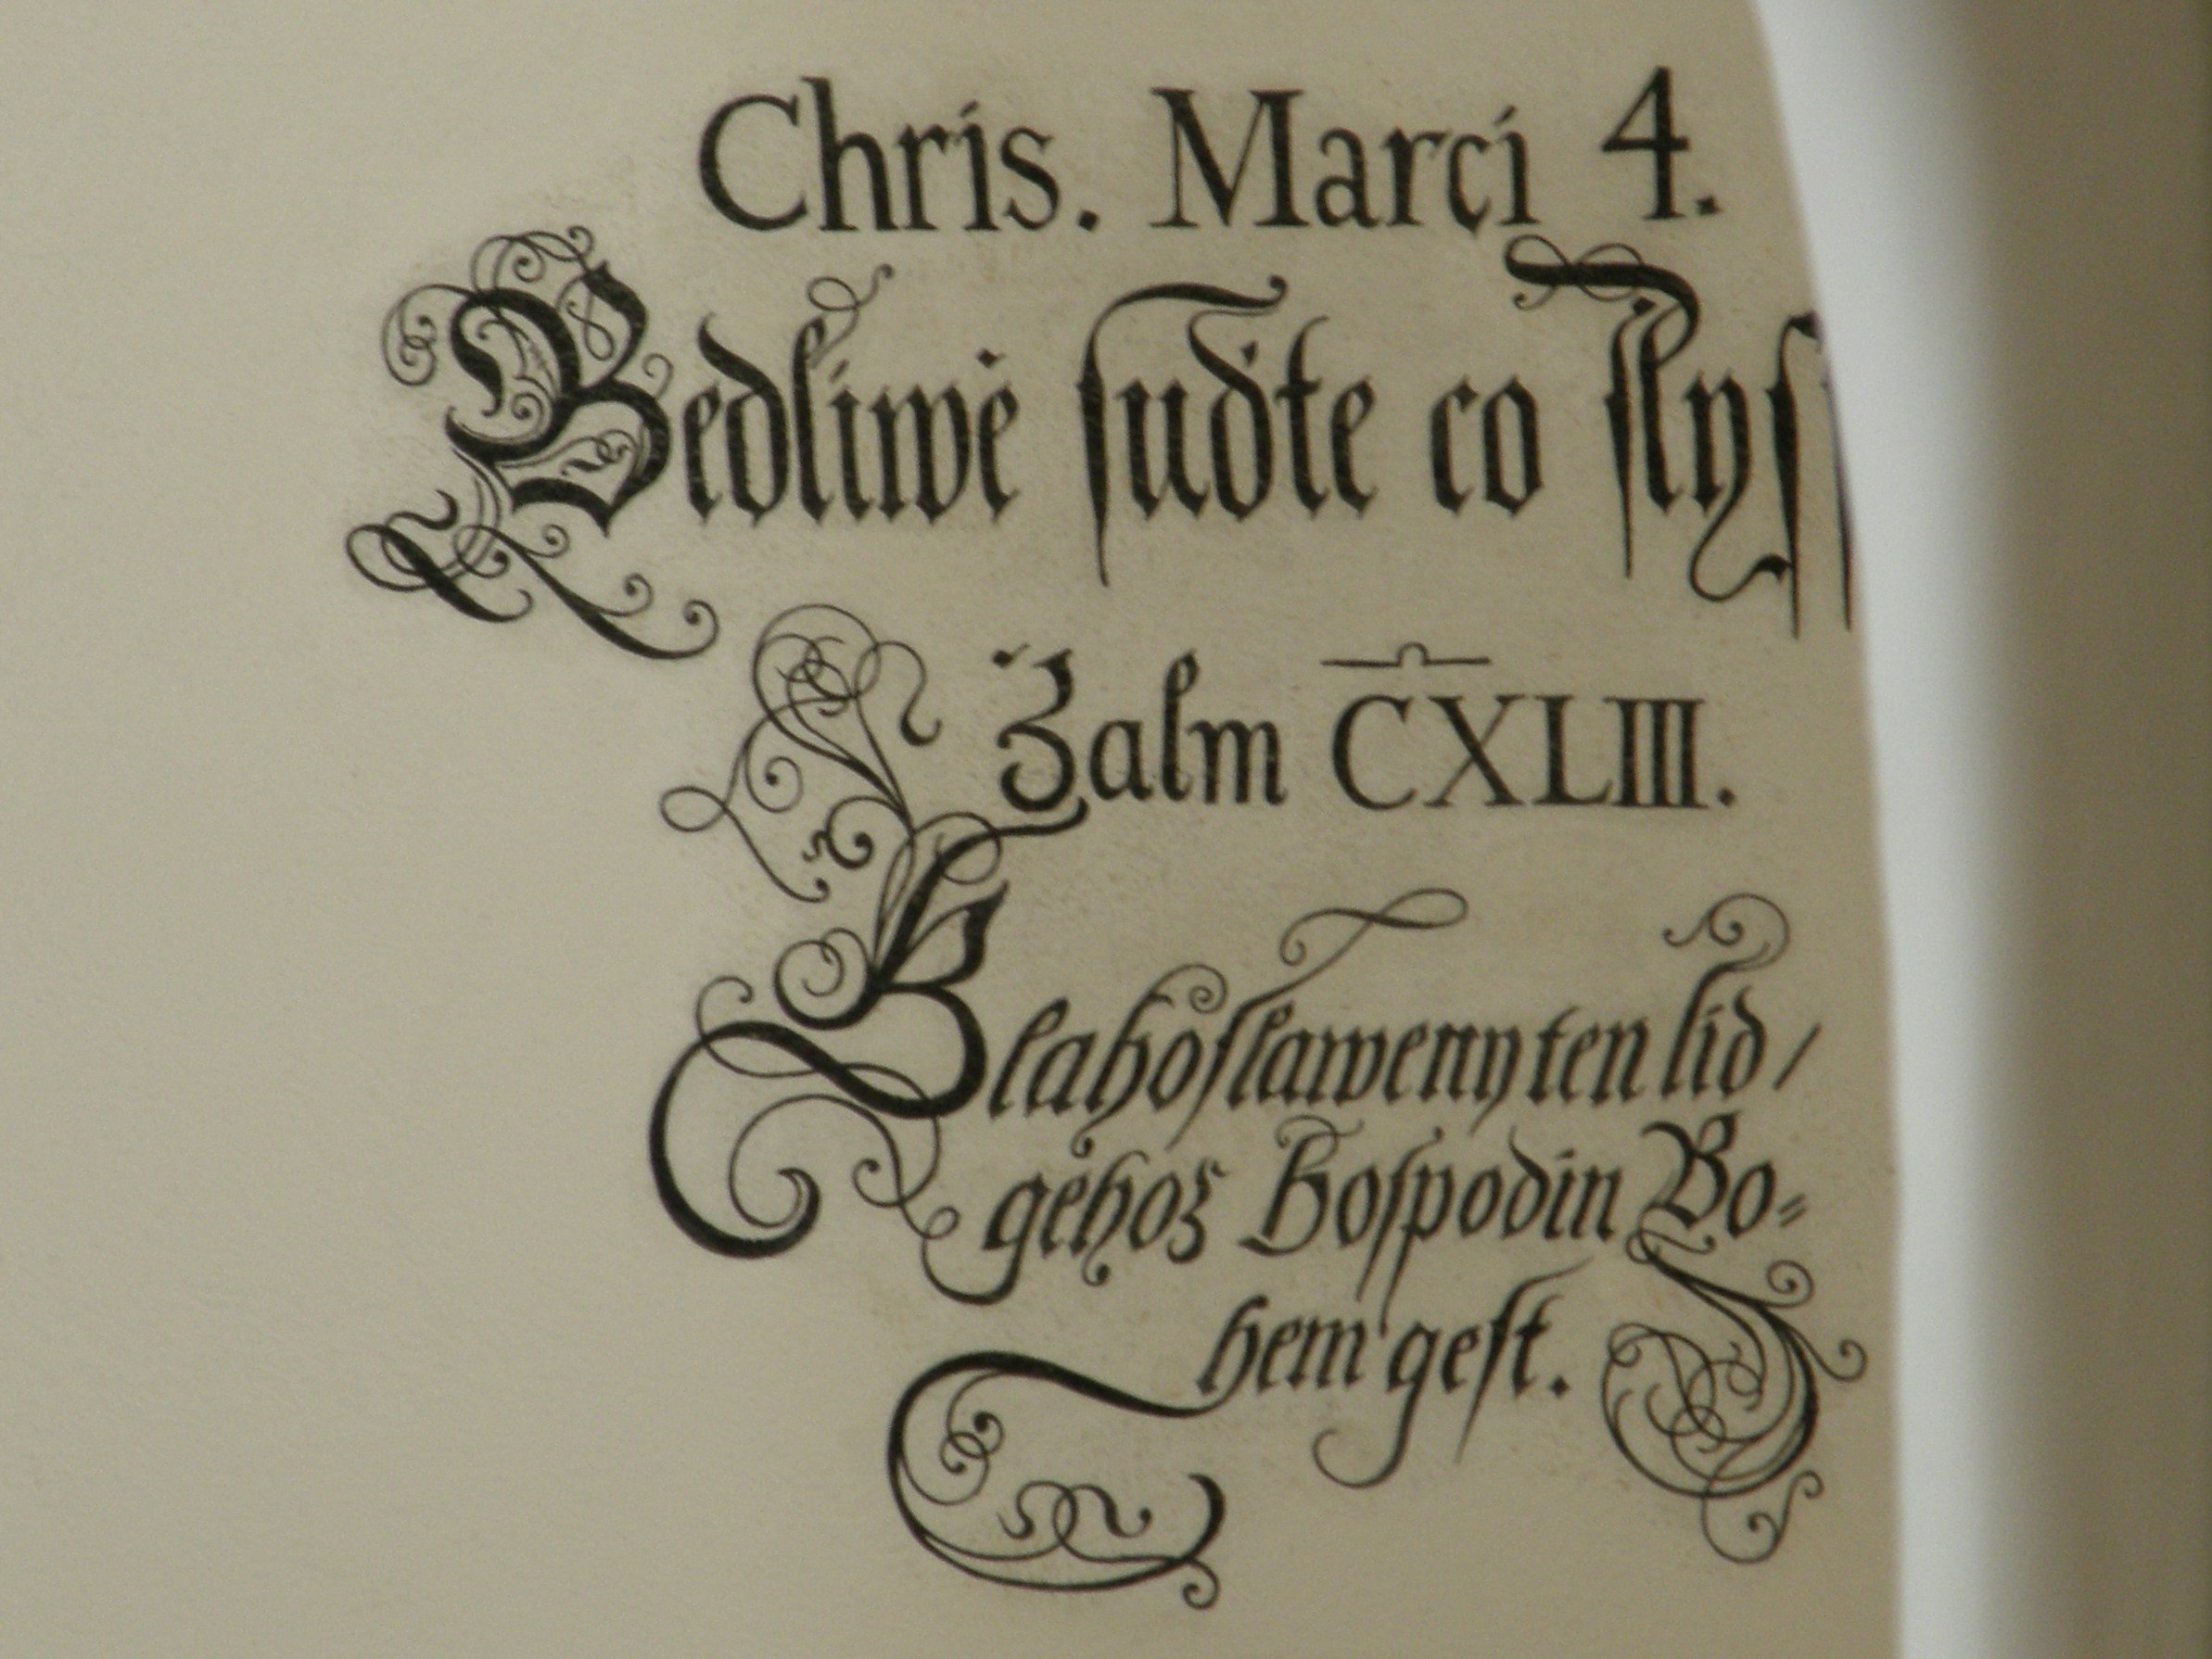 Chris. Marci 4.
Bedliwě ſuďte co ſlyſ
Žalm CXLIII.
Blahoſlawenny ten lid /
gehoz Hoſpodin Bo⸗
hem geſt.